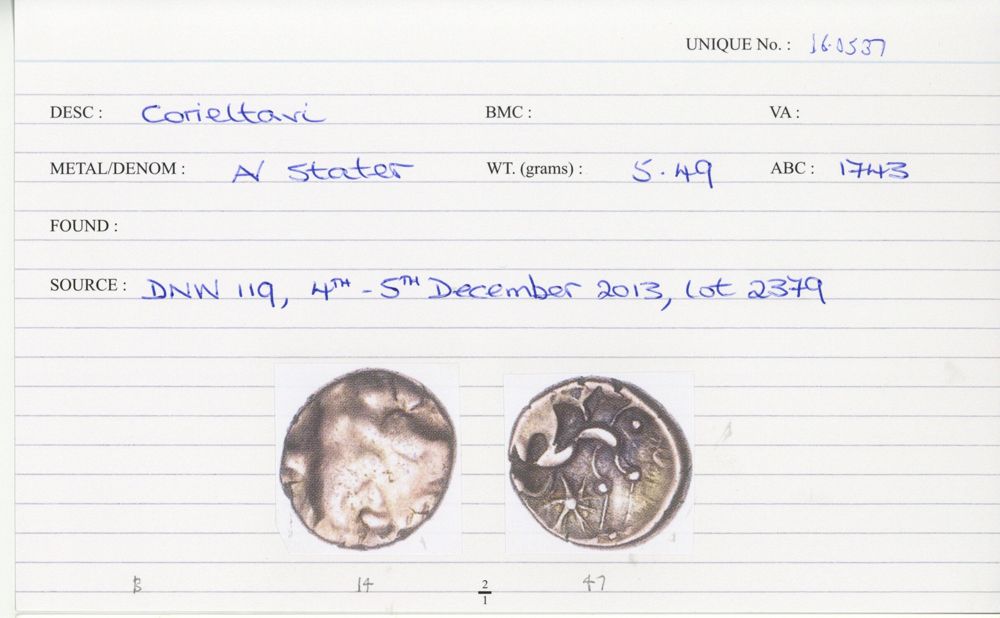 UNIQUE No. : 16.0537
DESC : Corieltavi BMC : VA :
METAL/DENOM : N Stater WT. (grams) : 5.49 ABC : 1743
FOUND :
SOURCE : DNW 119, 4TH - 5TH December 2013, Lot 2379
B 14 2/1 47